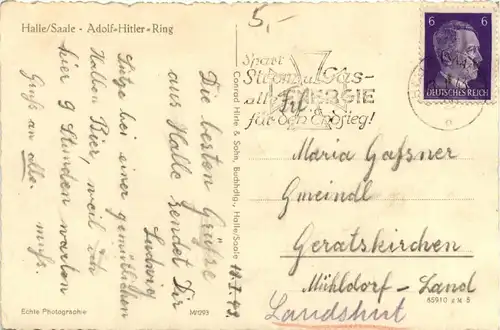 Halle/Saale · Adolf-Hitler-Ring
5,-
Die besten Grüße
aus Halle sendet Dir
Ludwig
Sitze bei einer gemütlichen
Halben Bier, weil ich
hier 9 Stunden warten
muß.
Gruß an alle.
18.I.43.
Conrad Hinle & Sohn, Buchhdlg., Halle/Saale
Spart
Strom u. Gas-
all ENERGIE
für den Endsieg!
Frl.
6 6
DEUTSCHES REICH
Maria Gaßner
Gmeindl
Geratskirchen
Mühldorf-Land
Landshut
Echte Photographie
M/093